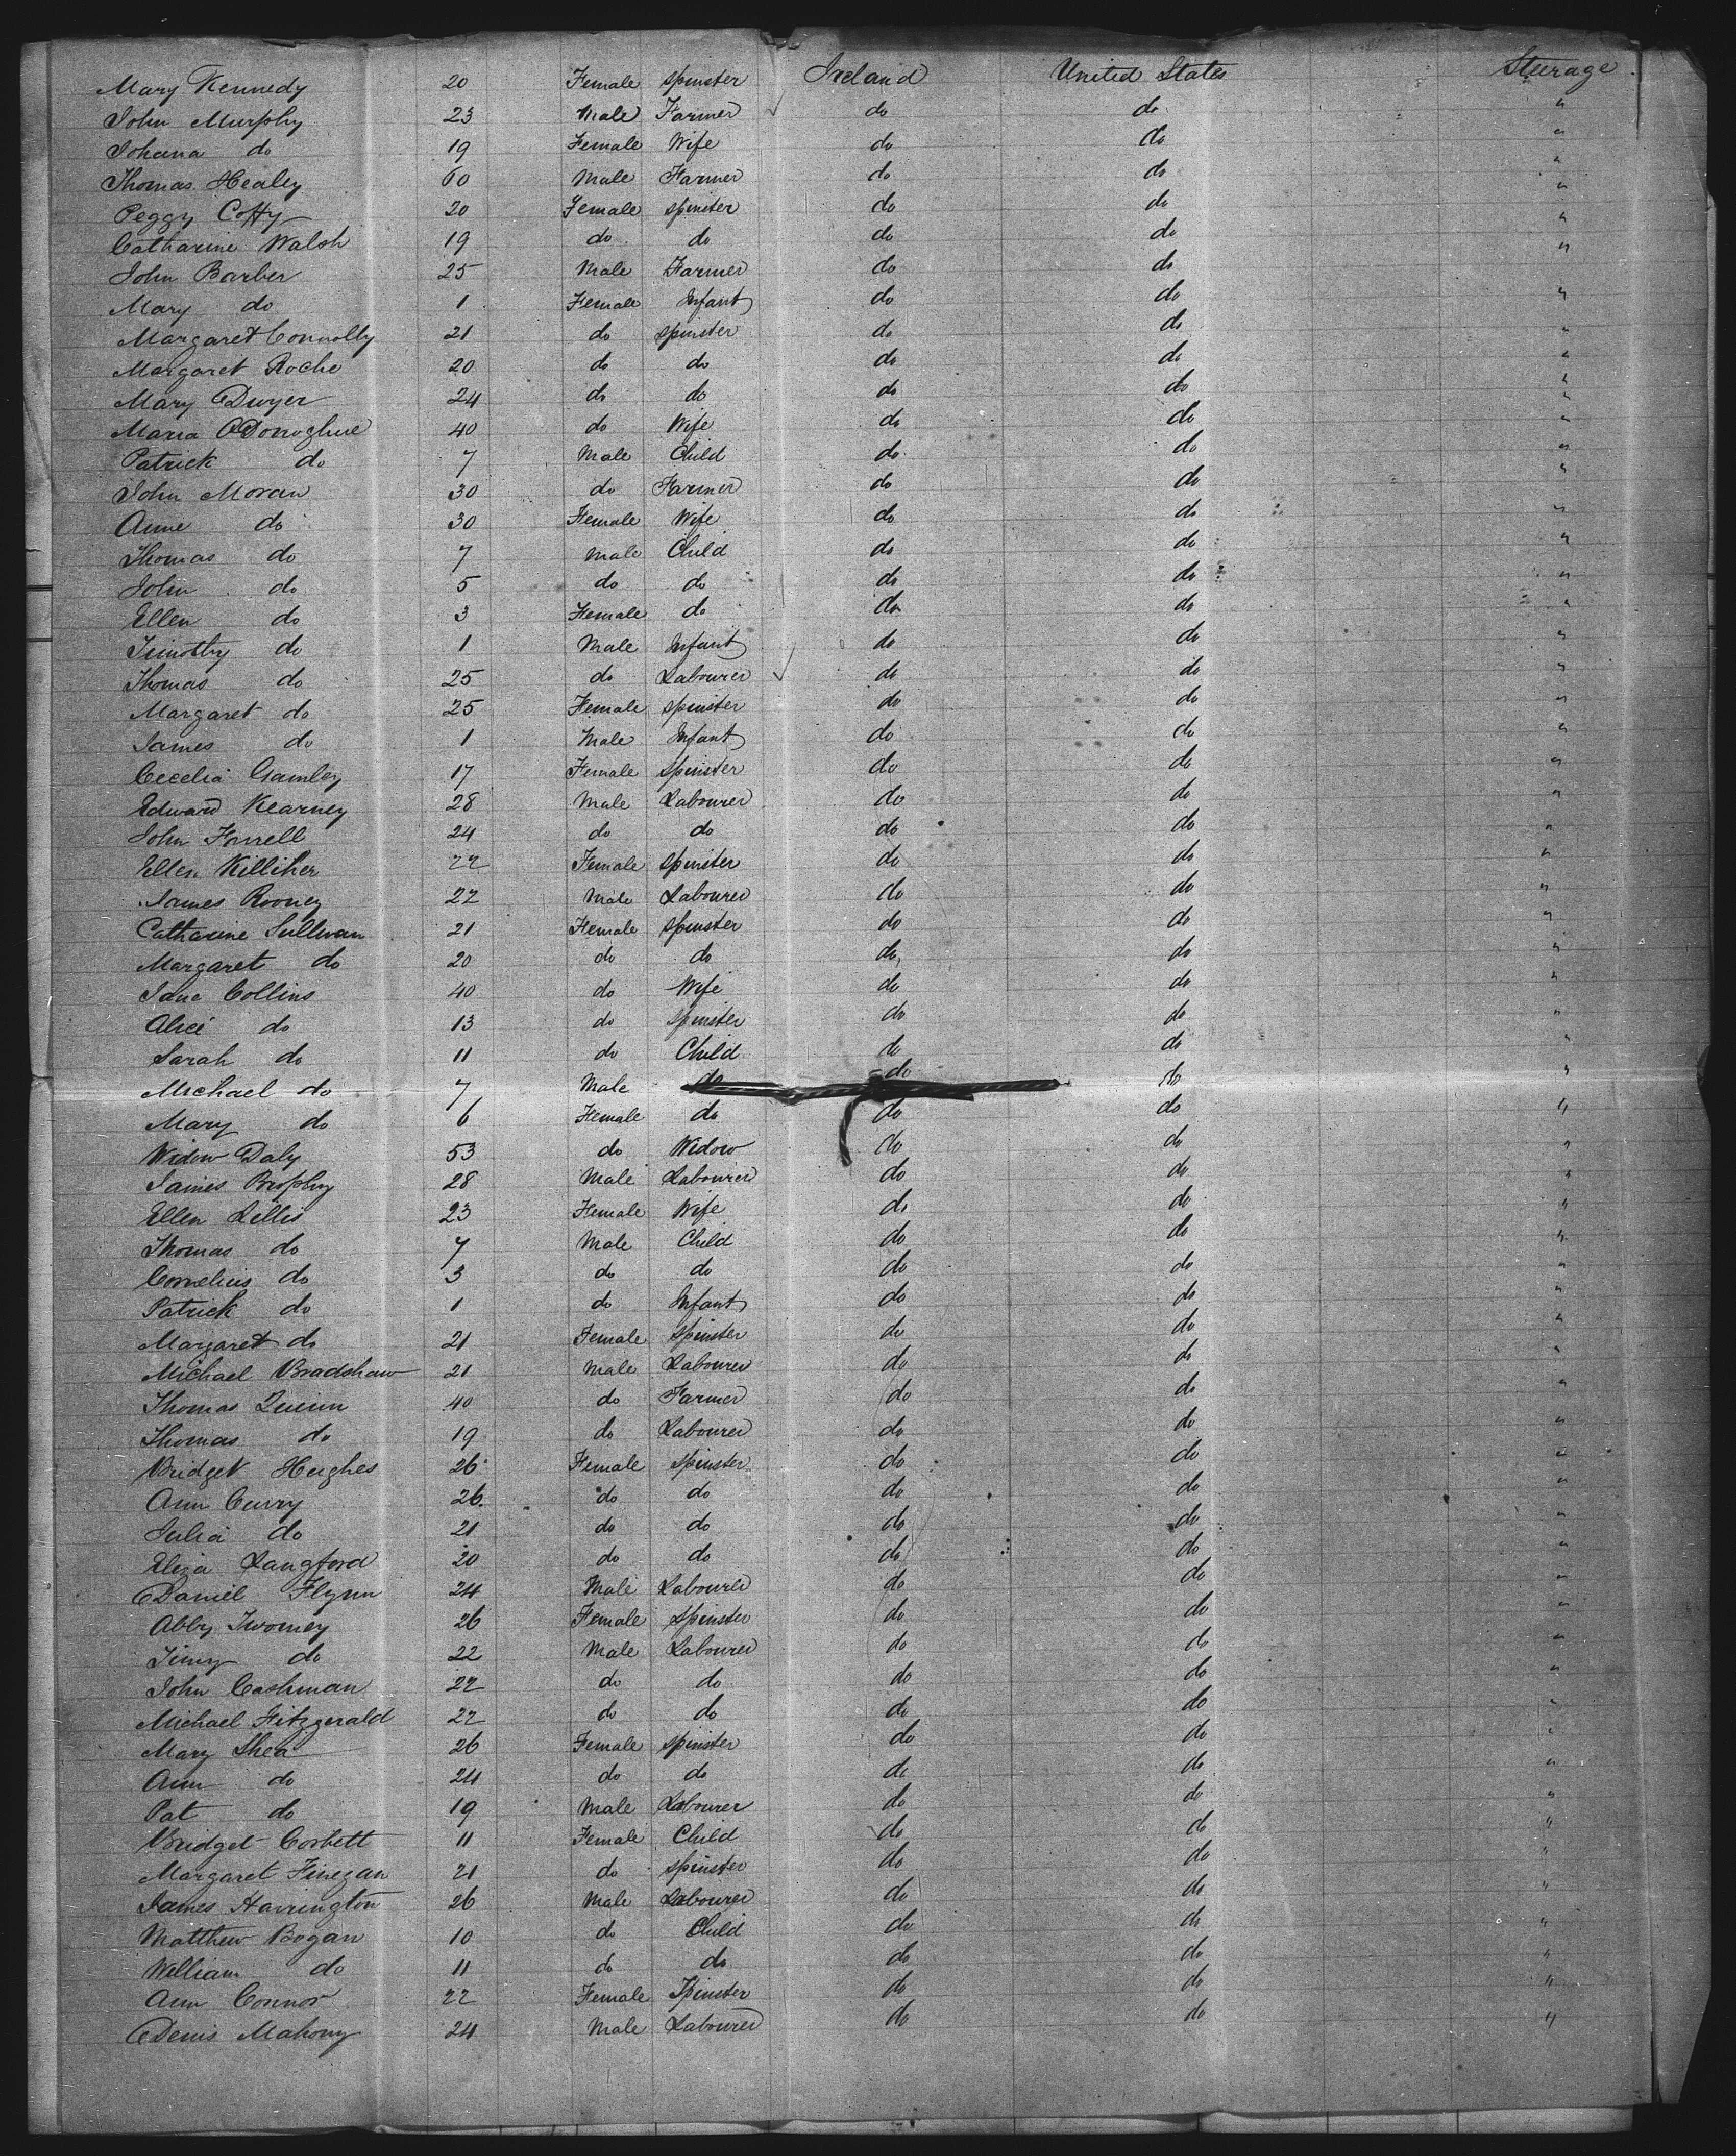 Mary Kennedy 20 Female Spinster Ireland United States Steerage
John Murphy 23 Male Farmer do do "
Johana do 19 Female Wife do do "
Thomas Healey 60 Male Farmer do do "
Peggy Coffy 20 Female Spinster do do "
Catharine Walsh 19 do do do do "
John Barber 25 Male Farmer do do "
Mary do 1 Female Infant do do "
Margaret Connolly 21 do Spinster do do "
Margaret Roche 20 do do do do "
Mary Dwyer 24 do do do do "
Maria ODonoghue 40 do Wife do do "
Patrick do 7 Male Child do do "
John Moran 30 do Farmer do do "
Anne do 30 Female Wife do do "
Thomas do 7 Male Child do do "
John do 5 do do do do "
Ellen do 3 Female do do do "
Timothy do 1 Male Infant do do "
Thomas do 25 do Labourer do do "
Margaret do 25 Female Spinster do do "
James do 1 Male Infant do do "
Cecelia Gamley 17 Female Spinster do do "
Edward Kearney 28 Male Labourer do do "
John Farrell 24 do do do do "
Ellen Killiher 22 Female Spinster do do "
James Rooney 22 Male Labourer do do "
Catharine Sullivan 21 Female Spinster do do "
Margaret do 20 do do do do "
Jane Collins 40 do Wife do do "
Alice do 13 do Spinster do do "
Sarah do 11 do Child do do "
Michael do 7 Male do do do "
Mary do 6 Female do do do "
Widow Daly 53 do Widow do do "
James Brophy 28 Male Labourer do do "
Ellen Lillis 23 Female Wife do do "
Thomas do 7 Male Child do do "
Cornelius do 3 do do do do "
Patrick do 1 do Infant do do "
Margaret do 21 Female Spinster do do "
Michael Bradshaw 21 Male Labourer do do "
Thomas Quinn 40 do Farmer do do "
Thomas do 19 do Labourer do do "
Bridget Hughes 26 Female Spinster do do "
Ann Curry 26 do do do do "
Julia do 21 do do do do "
Eliza Langford 20 do do do do "
Daniel Flynn 24 Male Labourer do do "
Abby Twomey 26 Female Spinster do do "
Jimy do 22 Male Labourer do do "
John Cashman 22 do do do do "
Michael Fitzgerald 22 do do do do "
Mary Shea 26 Female Spinster do do "
Ann do 24 do do do do "
Pat do 19 Male Labourer do do "
Bridget Corbett 11 Female Child do do "
Margaret Finegan 21 do Spinster do do "
James Harrington 26 Male Labourer do do "
Matthew Bogan 10 do Child do do "
William do 11 do do do do "
Ann Connor 22 Female Spinster do do "
Denis Mahony 24 Male Labourer do do "